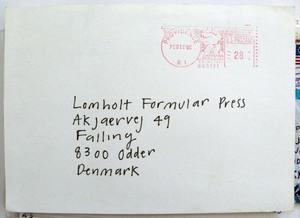 PROVIDENCE
R.I.
28
Lomholt Formular Press
Akjaervej 49
Falling
8300 Odder
Denmark